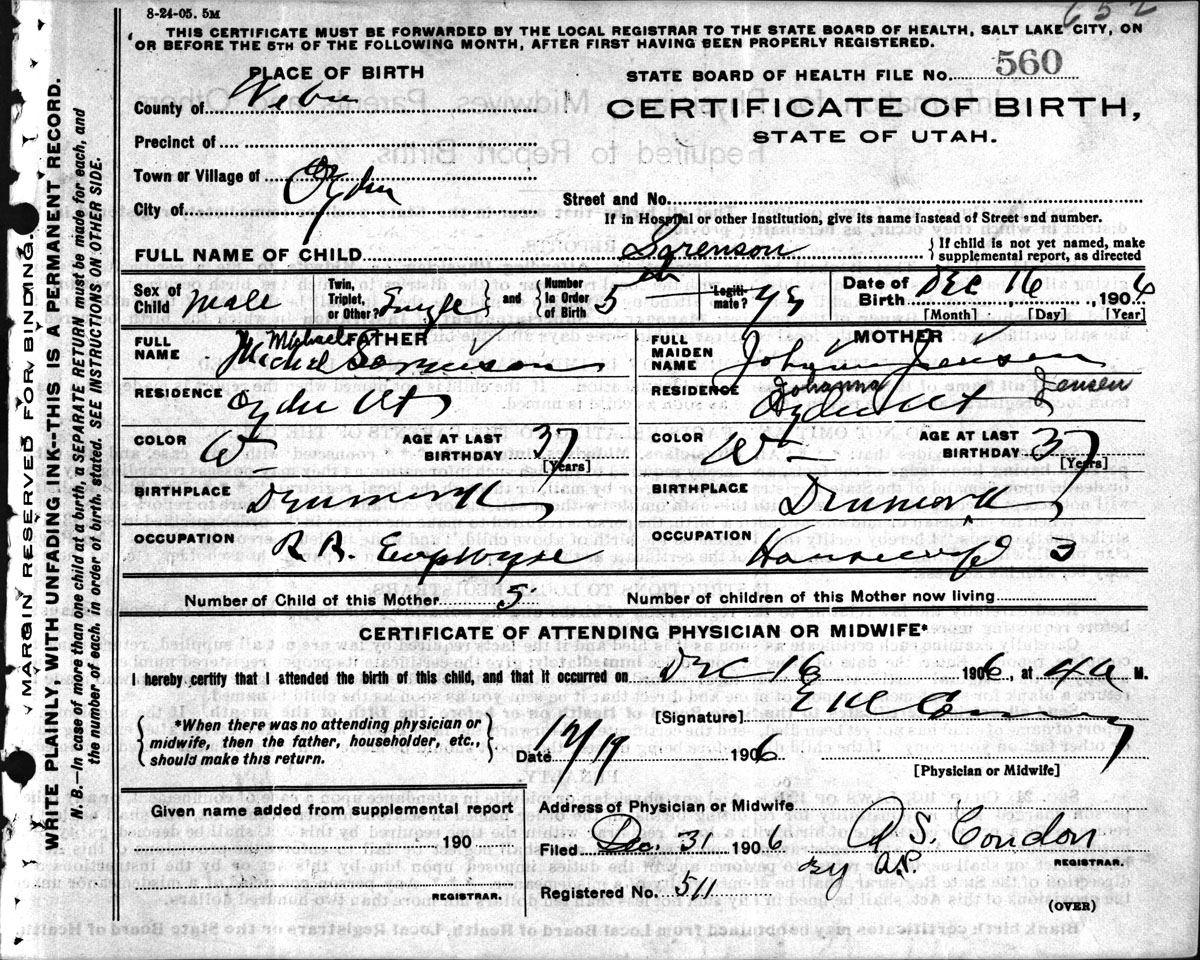 8-24-05. 5M
652
THIS CERTIFICATE MUST BE FORWARDED BY THE LOCAL REGISTRAR TO THE STATE BOARD OF HEALTH, SALT LAKE CITY, ON
OR BEFORE THE 5TH OF THE FOLLOWING MONTH, AFTER FIRST HAVING BEEN PROPERLY REGISTERED.
PLACE OF BIRTH
STATE BOARD OF HEALTH FILE No. 560
County of Weber
CERTIFICATE OF BIRTH,
STATE OF UTAH.
Precinct of
Town or Village of
City of Ogden
Street and No.
If in Hospital or other Institution, give its name instead of Street and number.
FULL NAME OF CHILD Sorenson
{If child is not yet named, make
supplemental report, as directed
Sex of Child male
Twin, Triplet, or Other? Single and Number in Order of Birth 5th
Legitimate? yes
Date of Birth Dec 16, 1906
[Month] [Day] [Year]
FATHER
FULL NAME Michael
MOTHER
FULL MAIDEN NAME Johanna Jensen
RESIDENCE Ogden Ut
RESIDENCE Ogden Ut
Johanna Jensen
COLOR W AGE AT LAST BIRTHDAY 37 [Years]
COLOR W AGE AT LAST BIRTHDAY 37 [Years]
BIRTHPLACE Denmark
BIRTHPLACE Denmark
OCCUPATION R.R. Employee
OCCUPATION Housewife
Number of Child of this Mother 5 Number of children of this Mother now living
CERTIFICATE OF ATTENDING PHYSICIAN OR MIDWIFE*
I hereby certify that I attended the birth of this child, and that it occurred on Dec 16 1906, at 4 a M.
{*When there was no attending physician or
midwife, then the father, householder, etc.,
should make this return.}
[Signature]
Date 12/19 1906
[Physician or Midwife]
Given name added from supplemental report
190
REGISTRAR.
Address of Physician or Midwife
Filed Dec. 31 1906 A S. Condon
REGISTRAR.
By A.P.
Registered No. 511
(OVER)
MARGIN RESERVED FOR BINDING.
WRITE PLAINLY, WITH UNFADING INK--THIS IS A PERMANENT RECORD.
N. B.—In case of more than one child at a birth, a SEPARATE RETURN must be made for each, and
the number of each, in order of birth, stated. SEE INSTRUCTIONS ON OTHER SIDE.